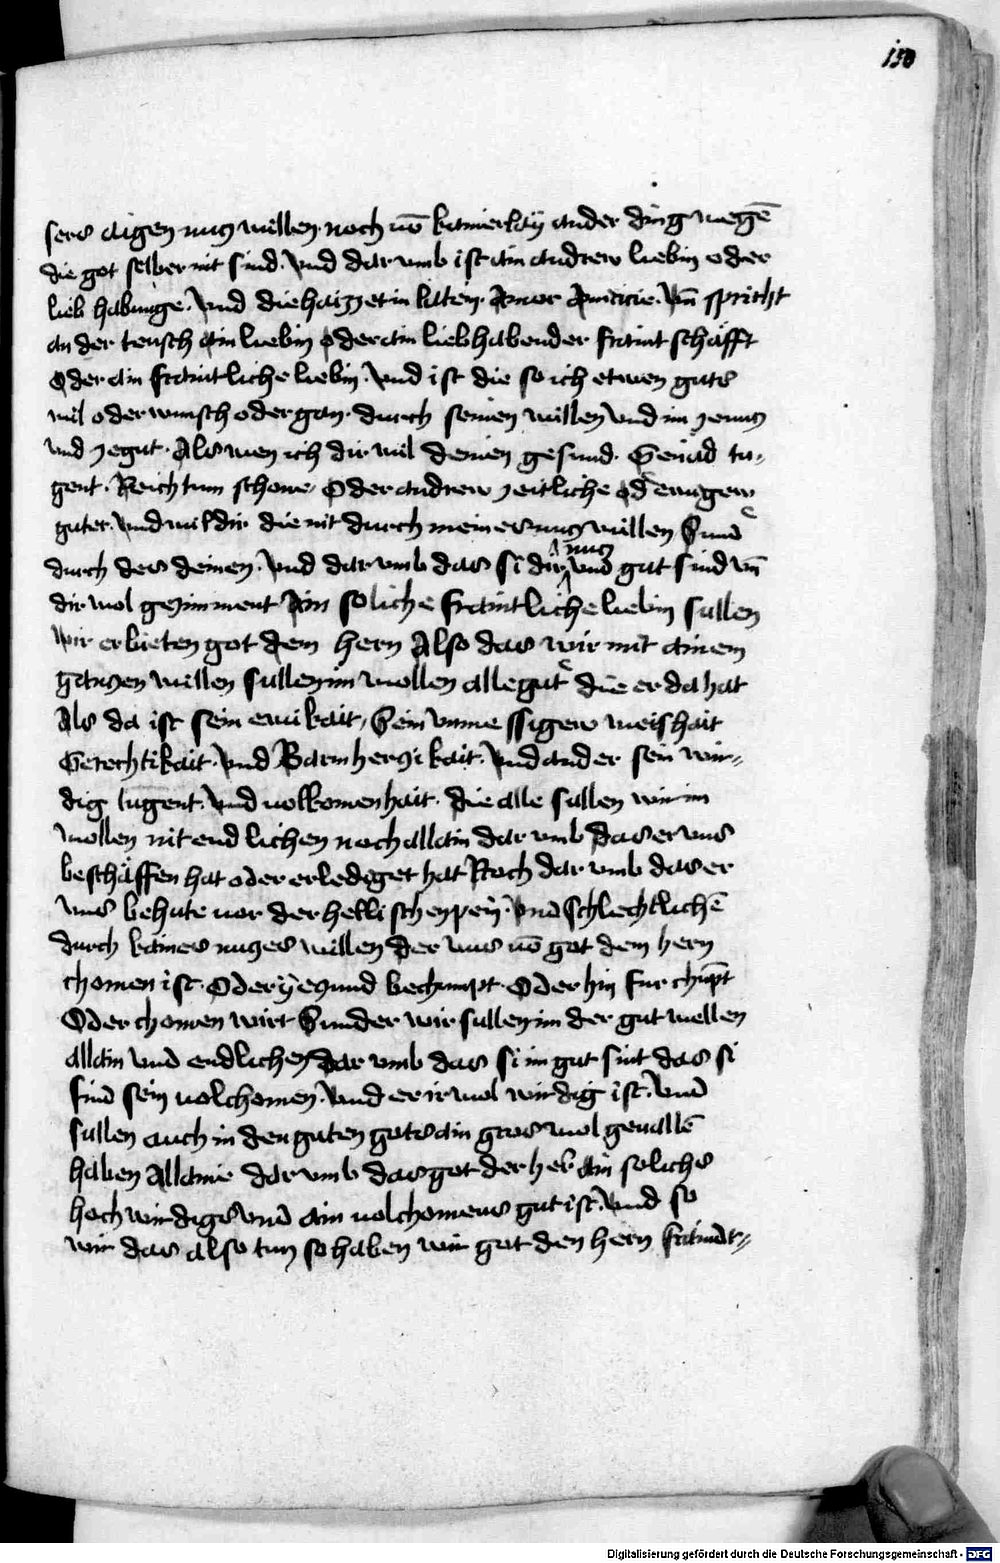 150
sers aigen nucz willen. noch uō kainerlaÿ ander ding wegē
die got selber nit sind. vnd dar vmb ist ain andrew liebin oder
lieb habunge. Vnd die haizzet in latein. Amor Amicicie. Vn̄ spricht
an der teusch ain liebin oder ain liebhabender fraint schäfft
Oder ain fraintliche liebin. Vnd ist die so ich etwen guts
wil oder wunsch oder gan. durch seinen willen Vnd im ze nucz
vnd ze gut. Als wen ich dir wil deinen gesund. Genad tu-
gent. Reichtum schone. Oder andrew zeitliche od ewigew
guter. Vnd wil dir die nit durch meines nucz willen Sund
durch des deinen. Vnd dar vmb das si dir nucz vnd gut sind vn̄
dir wol gezimment Ain soliche fraintliche liebin sullen
wir erbieten got dem hern Also das wir mit ainem
ganczen willen sullen im wollen alle gut die er da hat
Als da ist sein ewikait, Sein vnmessigew weishait
Gerechtikait. Vnd Barmherczikait. Vnd ander sein wir-
dig tugent. Vnd uolkomenhait. die alle sullen wir im
wollen nit endlichen noch allain dar vmb das er vns
beschäffen hat oder erlediget hat Noch dar vmb das er
vns behute uor der hellischen pein. Vnd schlechtlichē
durch kaines nuczes willen der vns uō got dem hern
chomen ist. Oder ÿeczund bechumpt. Oder hin fur chūpt
Oder chomen wirt Sunder wir sullen im der gut wellen
allain vnd endlichen dar vmb das si im gut sint das si
sind sein uolchomen. Vnd er ir wol wirdig ist. Vnd
sullen auch in den guten gots ain gros wol geuallē
haben Allaine dar vmb das got der her ain solichs
hoch wirdigs vnd ain uolchomens gut ist. Vnd so
wir das also tun so haben wir got den hern fraint-
Digitalisierung gefördert durch die Deutsche Forschungsgemeinschaft - DFG